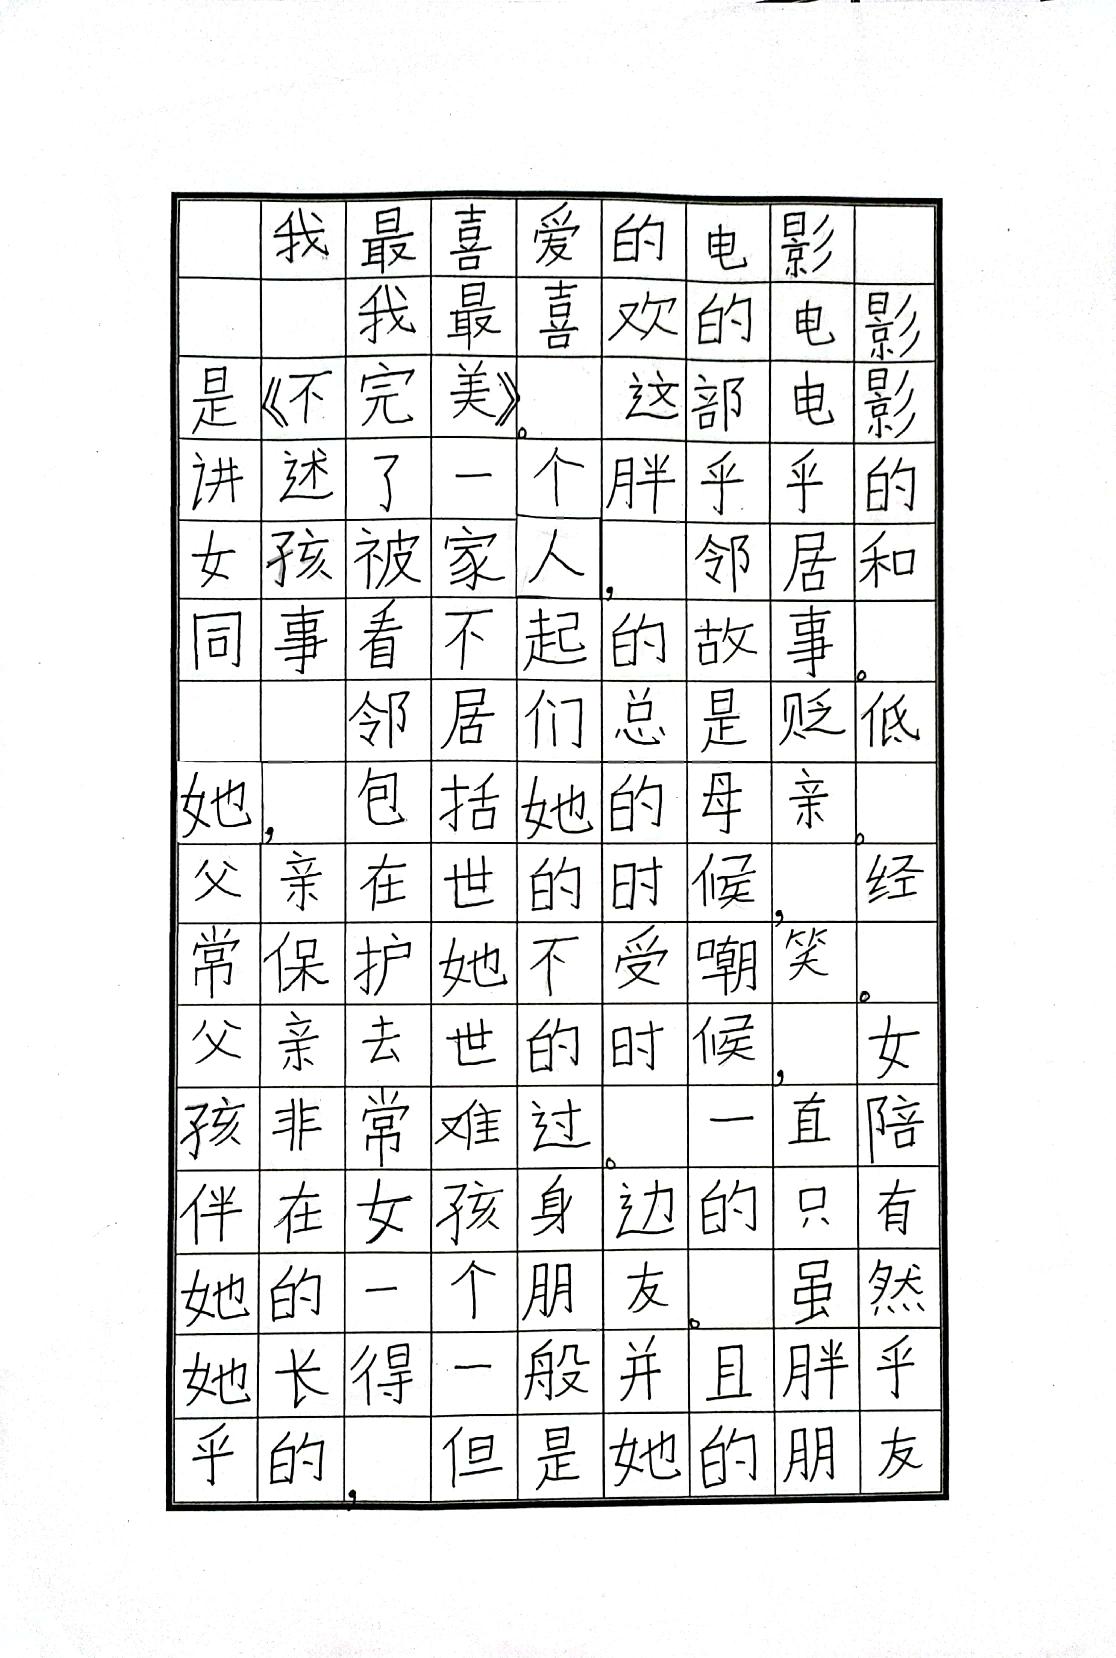 我最喜爱的电影
我最喜欢的电影
是《不完美》。这部电影
讲述了一个胖乎乎的
女孩被家人,邻居和
同事看不起的故事。
邻居们总是贬低
她,包括她的母亲。
父亲在世的时候,经
常保护她不受嘲笑。
父亲去世的时候,女
孩非常难过。一直陪
伴在女孩身边的只有
她的一个朋友。虽然
她长得一般并且胖乎
乎的,但是她的朋友